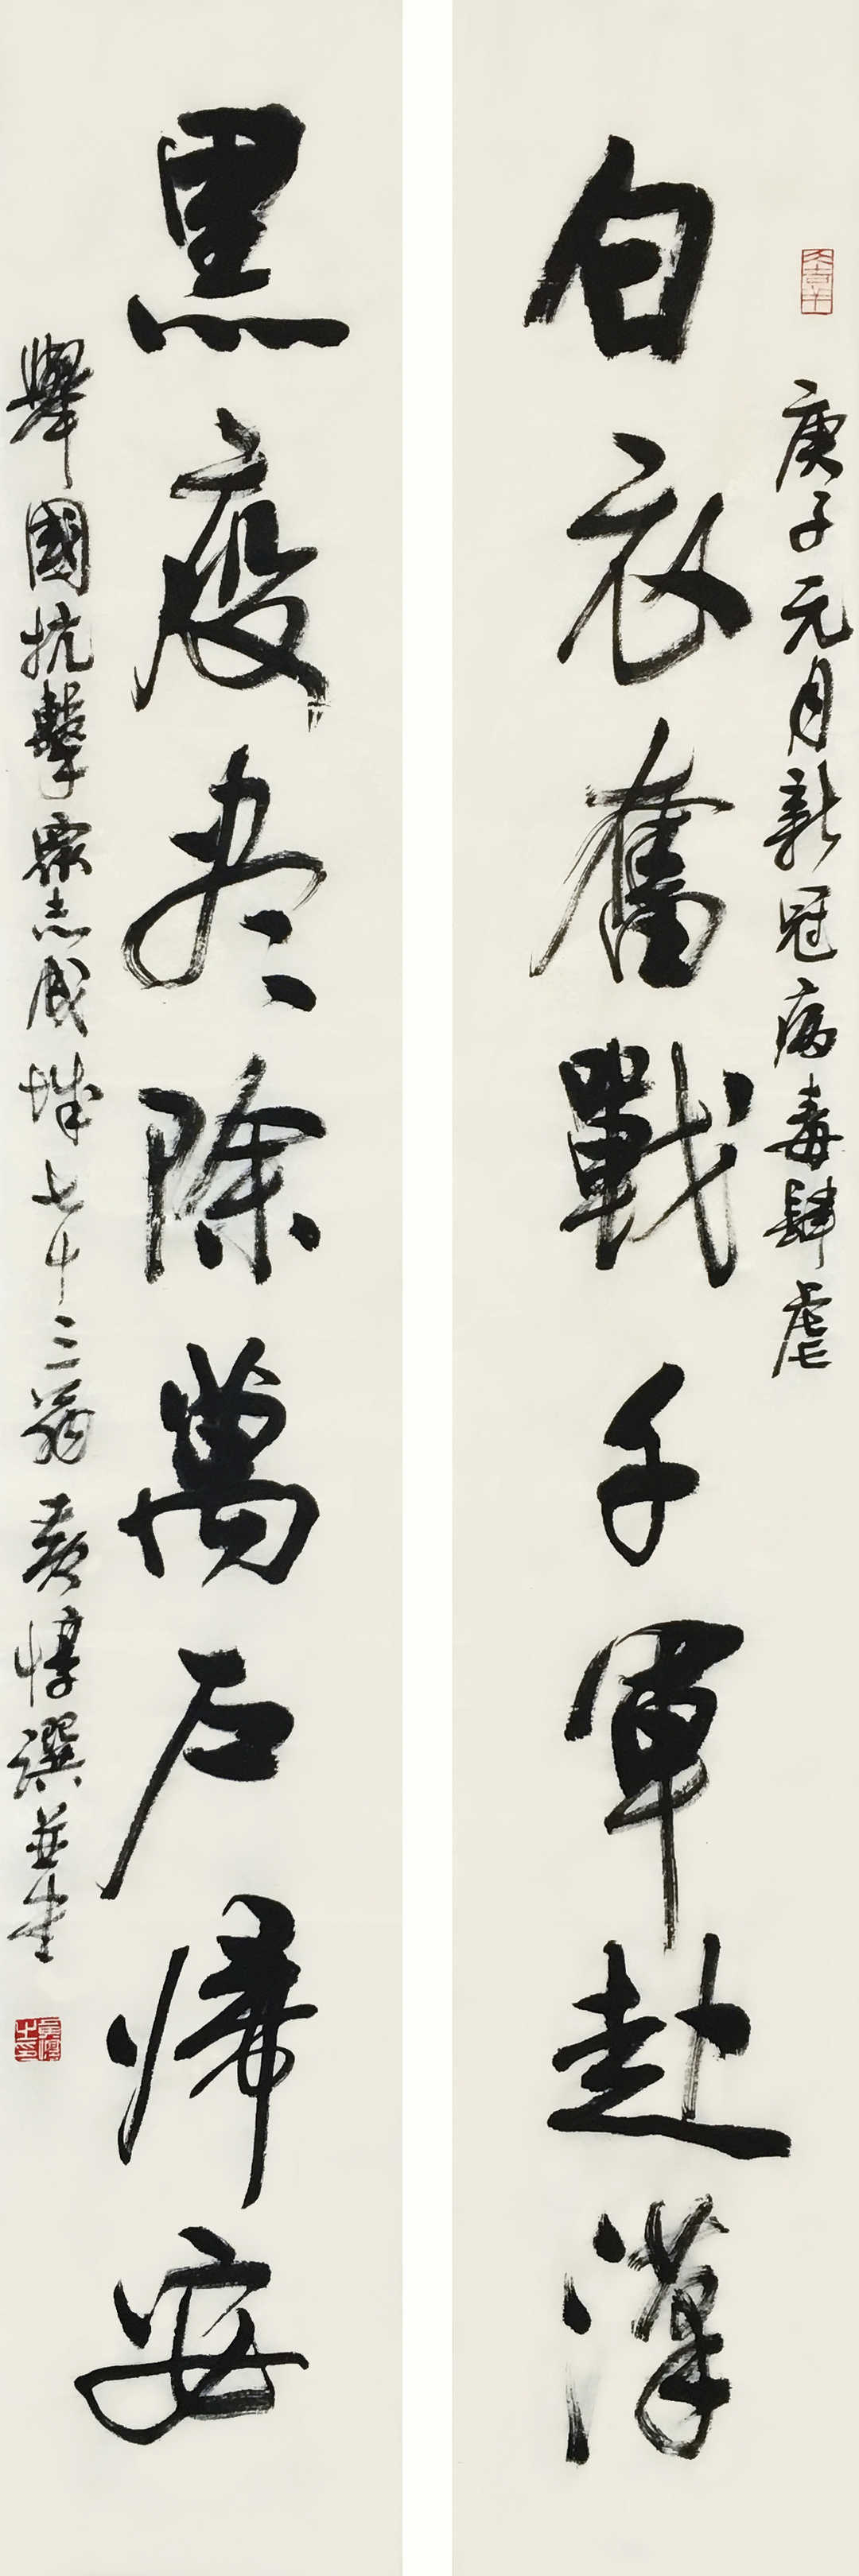 庚子元月新冠病毒肆虐
白衣奮戰千軍赴漢
黑疫盡除萬户歸安
舉國抗擊眾志成城七十三翁黄惇譔並書
黄惇之印